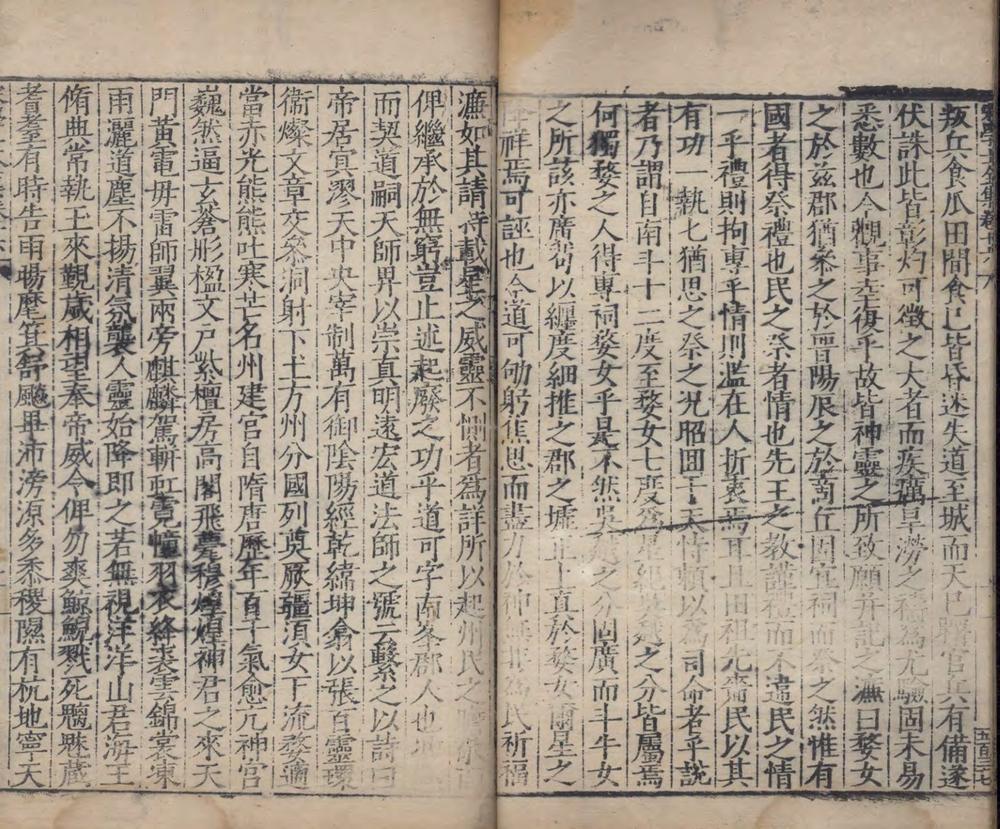 叛兵食瓜田間食已皆昏迷失道至城而天已曙官兵有備遂
伏誅此皆彰灼可徵之大者而疾癘旱澇之禱爲尤驗固未易
悉數也今觀事至復乎故皆神靈之所致願并記之濂曰婺女
之於兹郡猶參之於晋陽辰之於商丘固宜祠而祭之然惟有
國者得祭禮也民之祭者情也先王之教謹禮而不違民之情
一乎禮則拘專乎情則濫在人折衷焉耳且田祖先嗇民以其
有功一執七猶思之祭之况昭囬于天恃頼以爲司命者乎說
者乃謂自南斗十二度至婺女七度爲星紀吳越之分皆屬焉
何獨婺之人得專祠婺女乎是不然吳越之分固廣而斗牛女
之所該亦廣茍以纏度細推之郡之墟正上直於婺女爾星之
祥焉可誣也今道可劬躬焦思而盡力於神無非爲民祈福
濂如其請特載星之威靈不惻者爲詳所以起州民之
俾繼承於無窮豈止述起廢之功乎道可字南峯郡人也
而契道嗣天師畀以崇真明遠宏道法師之號云繫之以詩曰
帝居㝠漻天中央宰制萬有御陰陽經乾緯坤翕以張百靈環
衞燦文章交參洞射下土方州分國列奠厥疆須女下流婺適
當赤光熊熊吐寒芒名州建宫自隋唐歷年百千氣愈亢神宫
巍然逼玄蒼形楹文户紫檀房高閣飛甍穆煌煌神君之來天
門黄電毋雷師翼兩旁麒麟駕輧虹霓幢羽衣絳裘雲錦裳凍
雨灑道塵不揚清氛襲人靈始降即之若無視洋洋山君海王
脩典常執玉來覲歲相望奉帝威令俾勿爽鯨鯢戮死魑魅藏
耆耊有時告雨暘麾箕舒飈畢沛滂源多黍稷隰有杭地寧天